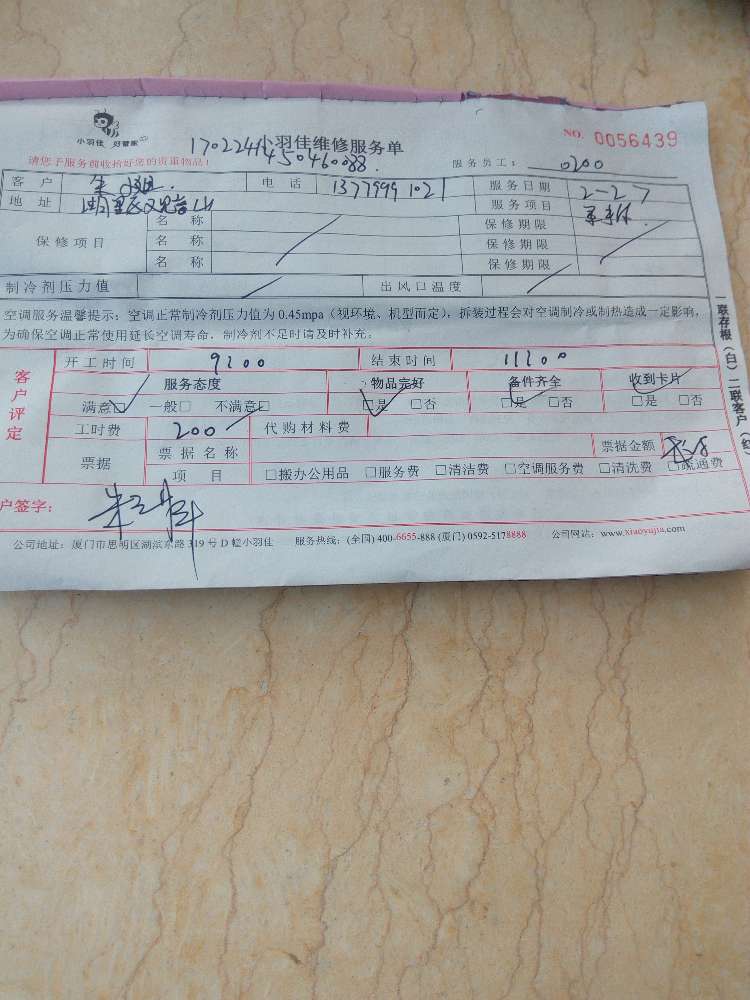 小羽佳 好管家
小羽佳维修服务单
NO. 0056439
请您予服务前收拾好您的贵重物品！
服务员工： 0200
客 户 朱 电 话 13779991021 服务日期 2-27
地 址 服务项目
保修项目 名 称 保修期限
名 称 保修期限
名 称 保修期限
制冷剂压力值 出风口温度
空调服务温馨提示：空调正常制冷剂压力值为 0.45mpa（视环境、机型而定），拆装过程会对空调制冷或制热造成一定影响，
为确保空调正常使用延长空调寿命，制冷剂不足时请及时补充。
客户评定
开工时间 9:00 结束时间 11:00
服务态度 物品完好 备件齐全 收到卡片
满意□ 一般□ 不满意□ □是 □否 □是 □否 □是 □否
工时费 200 代购材料费
票据 票据名称 票据金额
项 目 □搬办公用品 □服务费 □清洁费 □空调服务费 □清洗费 □疏通费
户签字：
公司地址：厦门市思明区湖滨东路 319 号 D 幢小羽佳 服务热线：(全国) 400-6655-888 (厦门) 0592-5178888 公司网站：www.xiaoyujia.com
一联存根（白）二联客户（红